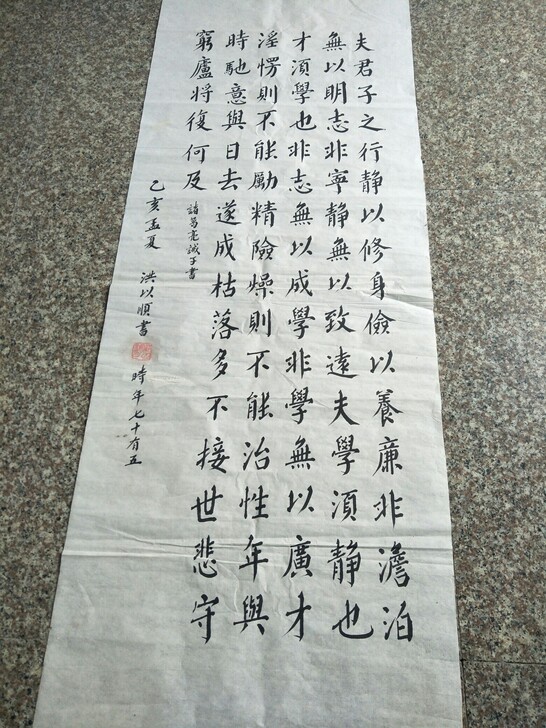 夫君子之行静以修身儉以養廉非澹泊
無以明志非寧静無以致遠夫學湏静也
才湏學也非志無以成學非學無以廣才
淫愣則不能勵精險燥則不能治性年與
時馳意與日去遂成枯落多不接世悲守
窮廬将復何及
諸葛亮誡子書
己亥孟夏 洪以順書 時年七十有五